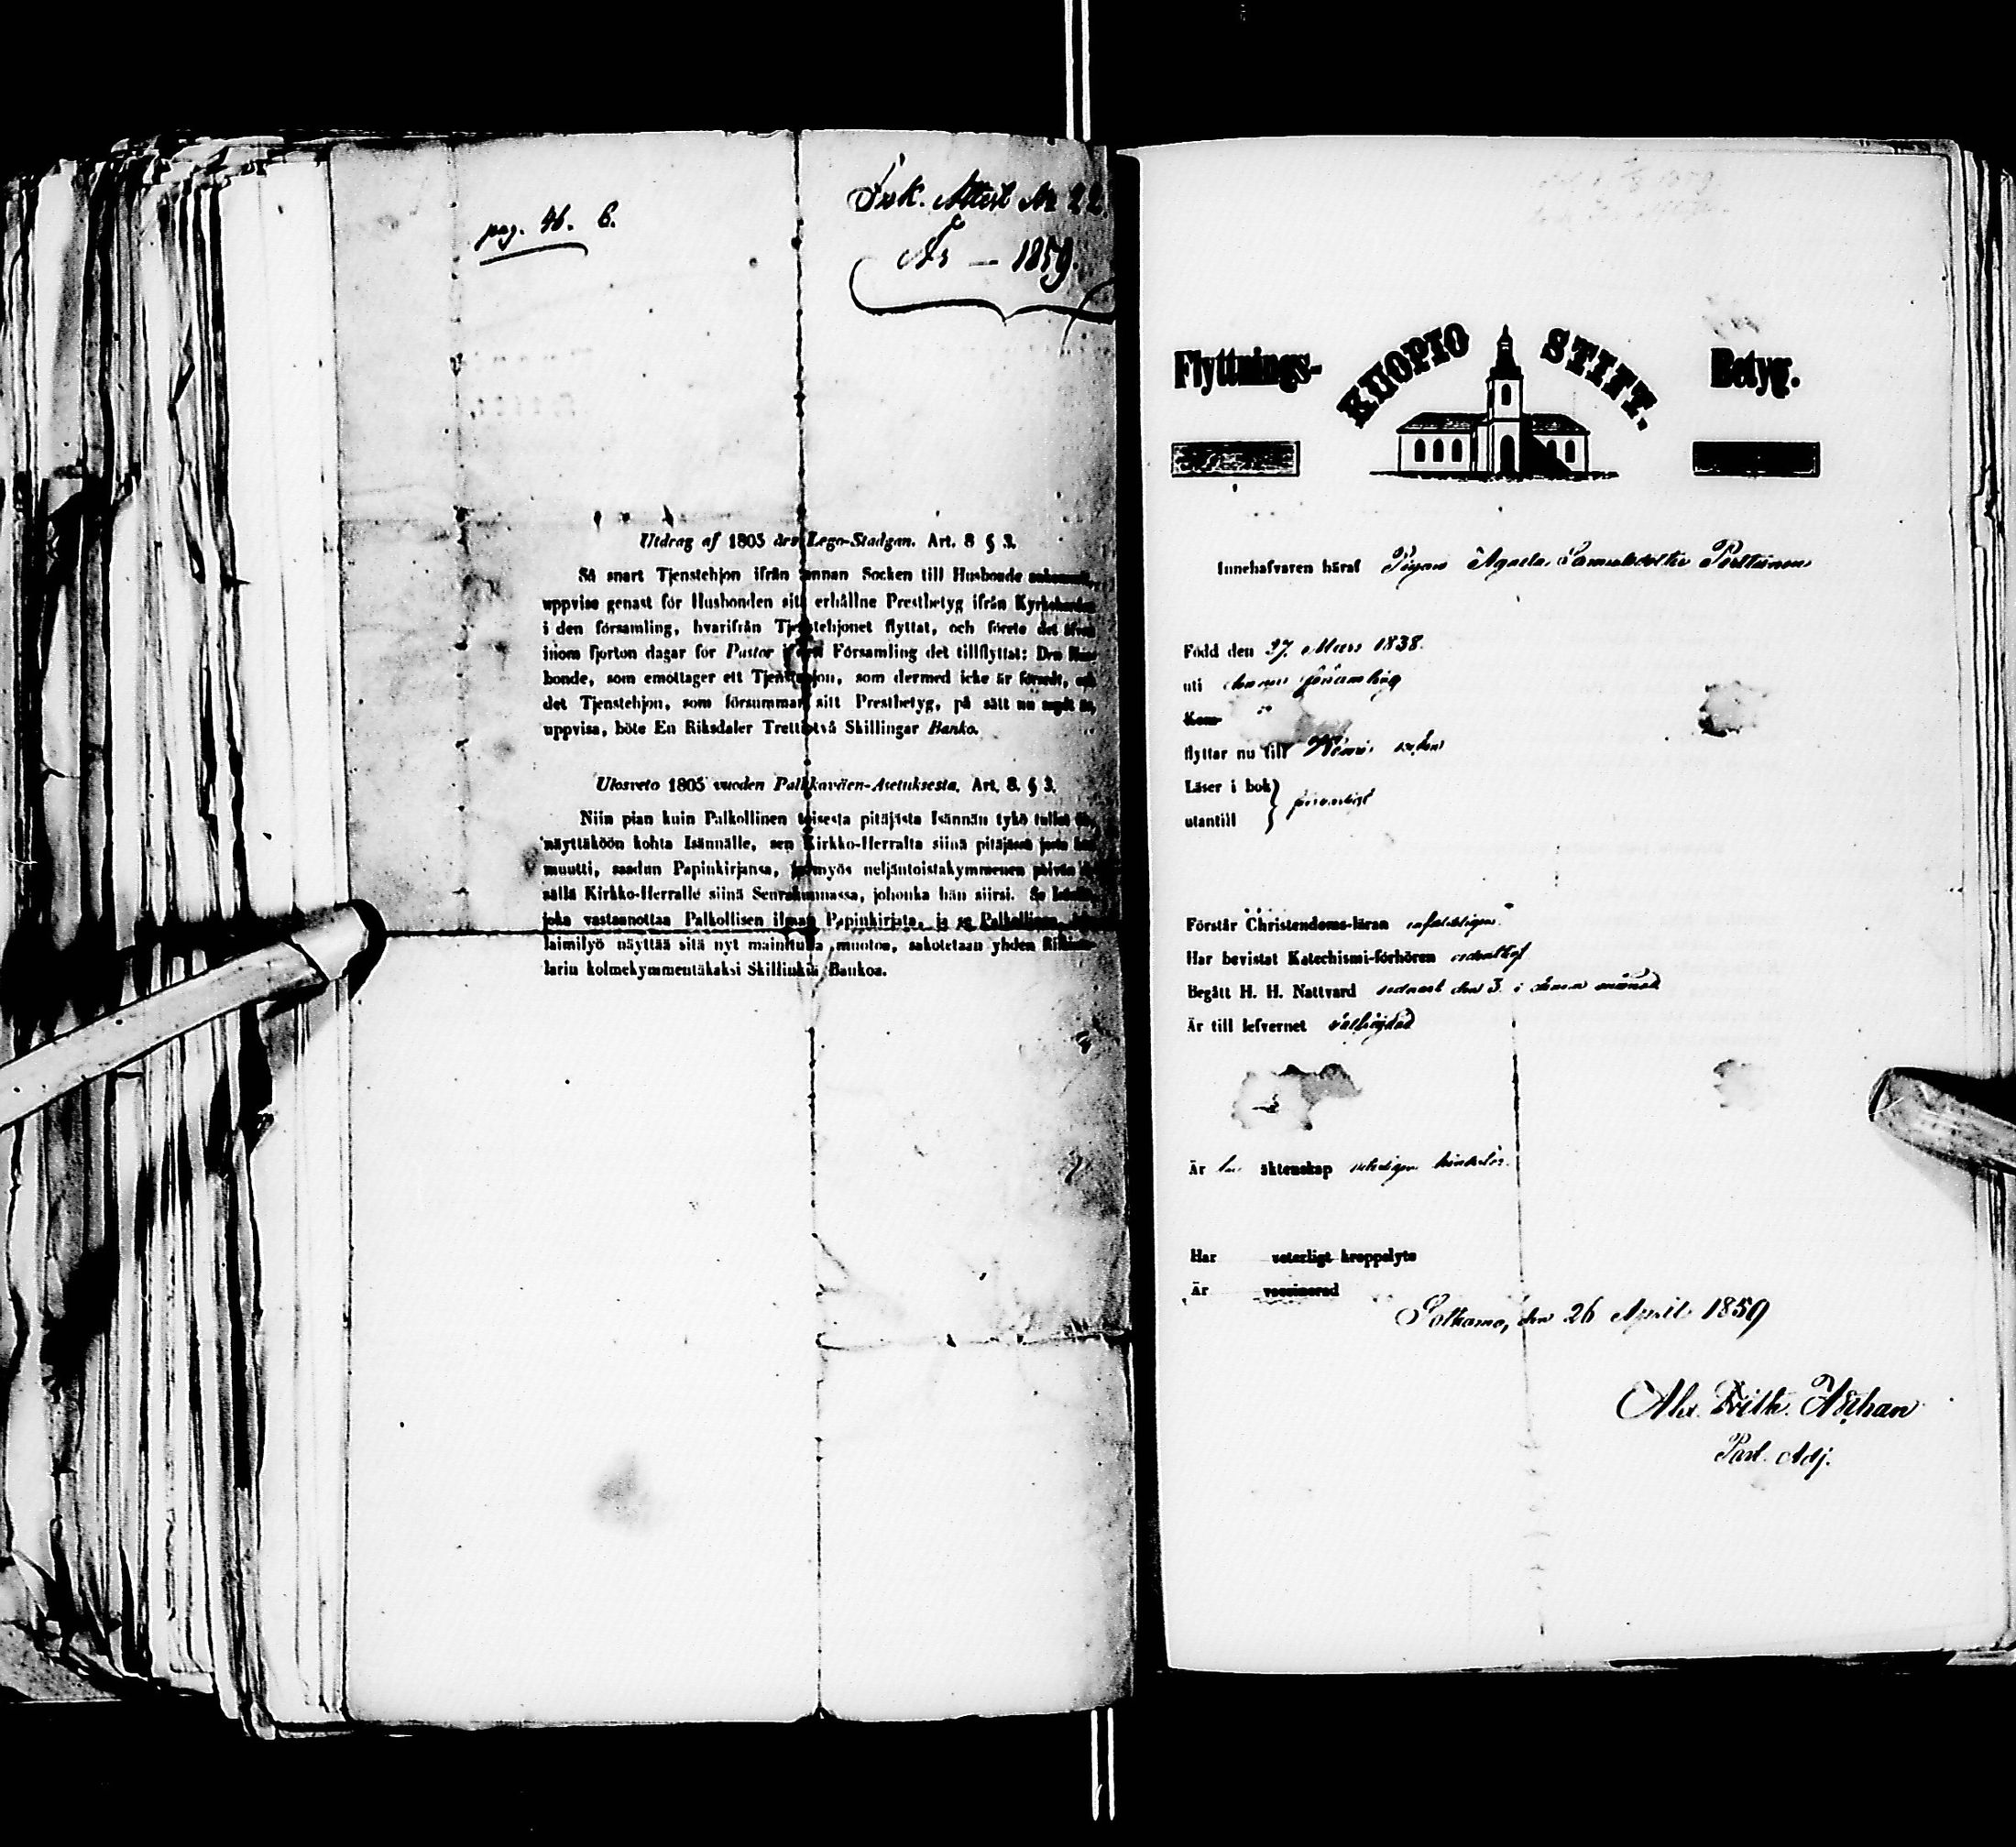 pag. 46. 6.
Ink. Attest No 22.
År — 1859.
Utdrag af 1805 års Lego-Stadgan. Art. 8 § 3.
Så snart Tjenstehjon ifrån annan Socken till Husbonde
uppvise genast för Husbonden sitt erhållne Prestbetyg ifrån Kyrkoherden
i den församling, hvarifrån Tjenstehjonet flyttat, och förete det
inom fjorton dagar för Pastor i den Församling det tillflyttat: Den Hus-
bonde, som emottager ett Tjenstehjon, som dermed icke är försedt, och
det Tjenstehjon, som försummar sitt Prestbetyg, på sätt nu sagdt är,
uppvisa, böte En Riksdaler Trettiotvå Skillingar Banko.
Ulosveto 1805 vuoden Palkkaväen-Asetuksesta. Art. 8. § 3.
Niin pian kuin Palkollinen toisesta pitäjästä Isännän tykö tullut
näyttäköön kohta Isännälle, sen Kirkko-Herralta siinä pitäjässä josta hän
muutti, saadun Papinkirjansa, ja myös neljäntoistakymmenen päivän
sällä Kirkko-Herralle siinä Seurakunnassa, johonka hän siirsi. Se
joka vastaanottaa Palkollisen ilman Papinkirjata, ja se Palkollinen,
laimilyö näyttää sitä nyt mainitulla muotoa, sakotetaan yhden Riksi-
larin kolmekymmentäkaksi Skillinkiä Bankoa.
Flyttnings- KUOPIO STIFT. Betyg.
Innehafvaren häraf Pigan Agatha Samuelsdotter Perttunen
Född den 27. Mars 1838.
uti denna församling
Kom-
flyttar nu till Kemi socken
Läser i bok
utantill
Förstår Christendoms-läran enfaldeligen
Har bevistat Katechismi-förhören ordentligt
Begått H. H. Nattvard sednast den 3. i denna månad
Är till lefvernet välfrejdad
Är till äktenskap veterligen hinderlös.
Har veterligt kroppslyte
Är vaccinerad
Sotkamo, den 26 April 1859
Alex. Frith.
Past. Adj.